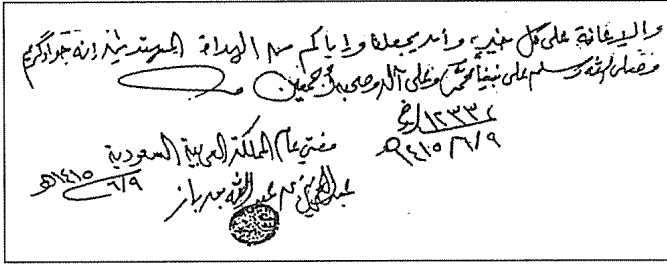 والإعانة على كل خير وأن يجعلنا وإياكم من الهداة المهتدين إنه جواد كريم
وصلى الله وسلم على نبينا محمد وعلى آله وصحبه أجمعين
١٢٣٣٢/خ
١٤١٥/٦/٩هـ
مفتي عام المملكة العربية السعودية
١٤١٥/٦/٩هـ
عبدالعزيز بن عبدالله بن باز